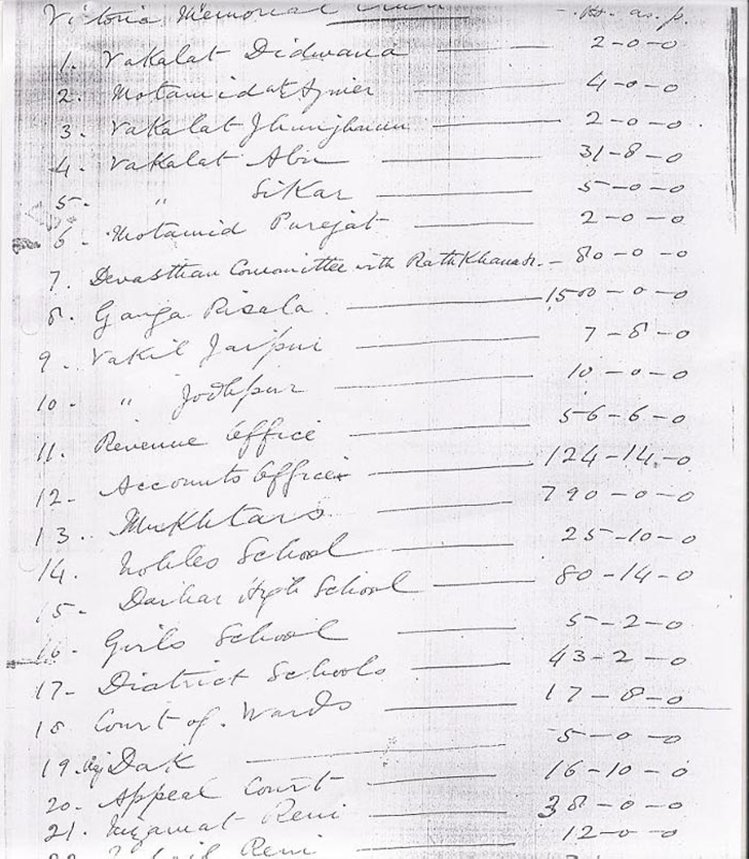 Victoria Memorial Rs. as. p.
1. Vakalat Didwana 2-0-0
2. Motamid at Ajmer 4-0-0
3. Vakalat Jhunjhunu 2-0-0
4. Vakalat Abu 31-8-0
5. " Sikar 5-0-0
6. Motamid Purejat 2-0-0
7. Devasthan Committee with RathKhana 80-0-0
8. Ganga Risala 1500-0-0
9. Vakil Jaipur 7-8-0
10. " Jodhpur 10-0-0
11. Revenue Office 56-6-0
12. Accounts Office 124-14-0
13. Mukhtars 790-0-0
14. Nobles School 25-10-0
15. Darbar High School 80-14-0
16. Girls School 5-2-0
17. District Schools 43-2-0
18 Court of Wards 17-8-0
19. Dak 5-0-0
20. Appeal Court 16-10-0
21. Nizamat Reni 38-0-0
22. Tahsil Reni 12-0-0